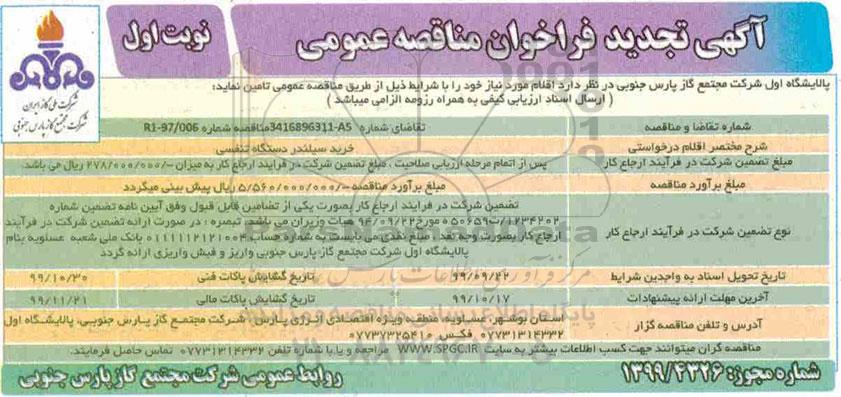 آگهی تجدید فراخوان مناقصه عمومی
نوبت اول
شرکت ملی گاز ایران
شرکت مجتمع گاز پارس جنوبی
پالایشگاه اول شرکت مجتمع گاز پارس جنوبی در نظر دارد اقلام مورد نیاز خود را با شرایط ذیل از طریق مناقصه عمومی تامین نماید:
( ارسال اسناد ارزیابی کیفی به همراه رزومه الزامی میباشد )
شماره تقاضا و مناقصه
تقاضای شماره 3416896311-A5مناقصه شماره R1-97/006
شرح مختصر اقلام درخواستی
خرید سیلندر دستگاه تنفسی
مبلغ تضمین شرکت در فرآیند ارجاع کار
پس از اتمام مرحله ارزیابی صلاحیت ، مبلغ تضمین شرکت در فرایند ارجاع کار به میزان -/۲۷۸/۰۰۰/۰۰۰ ریال می باشد.
مبلغ برآورد مناقصه
مبلغ برآورد مناقصه -/۵/۵۶۰/۰۰۰/۰۰۰ ریال پیش بینی میگردد
نوع تضمین شرکت در فرآیند ارجاع کار
تضمین شرکت در فرایند ارجاع کار بصورت یکی از تضامین قابل قبول وفق آیین نامه تضمین شماره
۱۲۳۴۰۲/ت۵۰۶۵۹ه مورخ ۹۴/۰۹/۲۲ هیات وزیران می باشد. تبصره : در صورت ارائه تضمین شرکت در فرآیند
ارجاع کار بصورت وجه نقد ، مبلغ نقدی می بایست به شماره حساب ۰۱۱۱۱۱۲۱۲۱۰۰۴ بانک ملی شعبه عسلویه بنام
پالایشگاه اول شرکت مجتمع گاز پارس جنوبی واریز و فیش واریزی ارائه گردد
تاریخ تحویل اسناد به واجدین شرایط
۹۹/۰۹/۲۲
تاریخ گشایش پاکات فنی
۹۹/۱۰/۳۰
آخرین مهلت ارائه پیشنهادات
۹۹/۱۰/۱۷
تاریخ گشایش پاکات مالی
۹۹/۱۱/۲۱
آدرس و تلفن مناقصه گزار
استان بوشهر، عسلویه، منطقه ویژه اقتصادی انرژی پارس، شرکت مجتمع گاز پارس جنوبی، پالایشگاه اول
۰۷۷۳۱۳۱۴۳۳۲ فکس ۰۷۷۳۷۳۲۵۴۱۰
مناقصه گران میتوانند جهت کسب اطلاعات بیشتر به سایت WWW.SPGC.IR مراجعه و یا با شماره تلفن ۰۷۷۳۱۳۱۴۳۳۲ تماس حاصل فرمایند.
شماره مجوز: ۱۳۹۹/۴۳۲۶
روابط عمومی شرکت مجتمع گاز پارس جنوبی